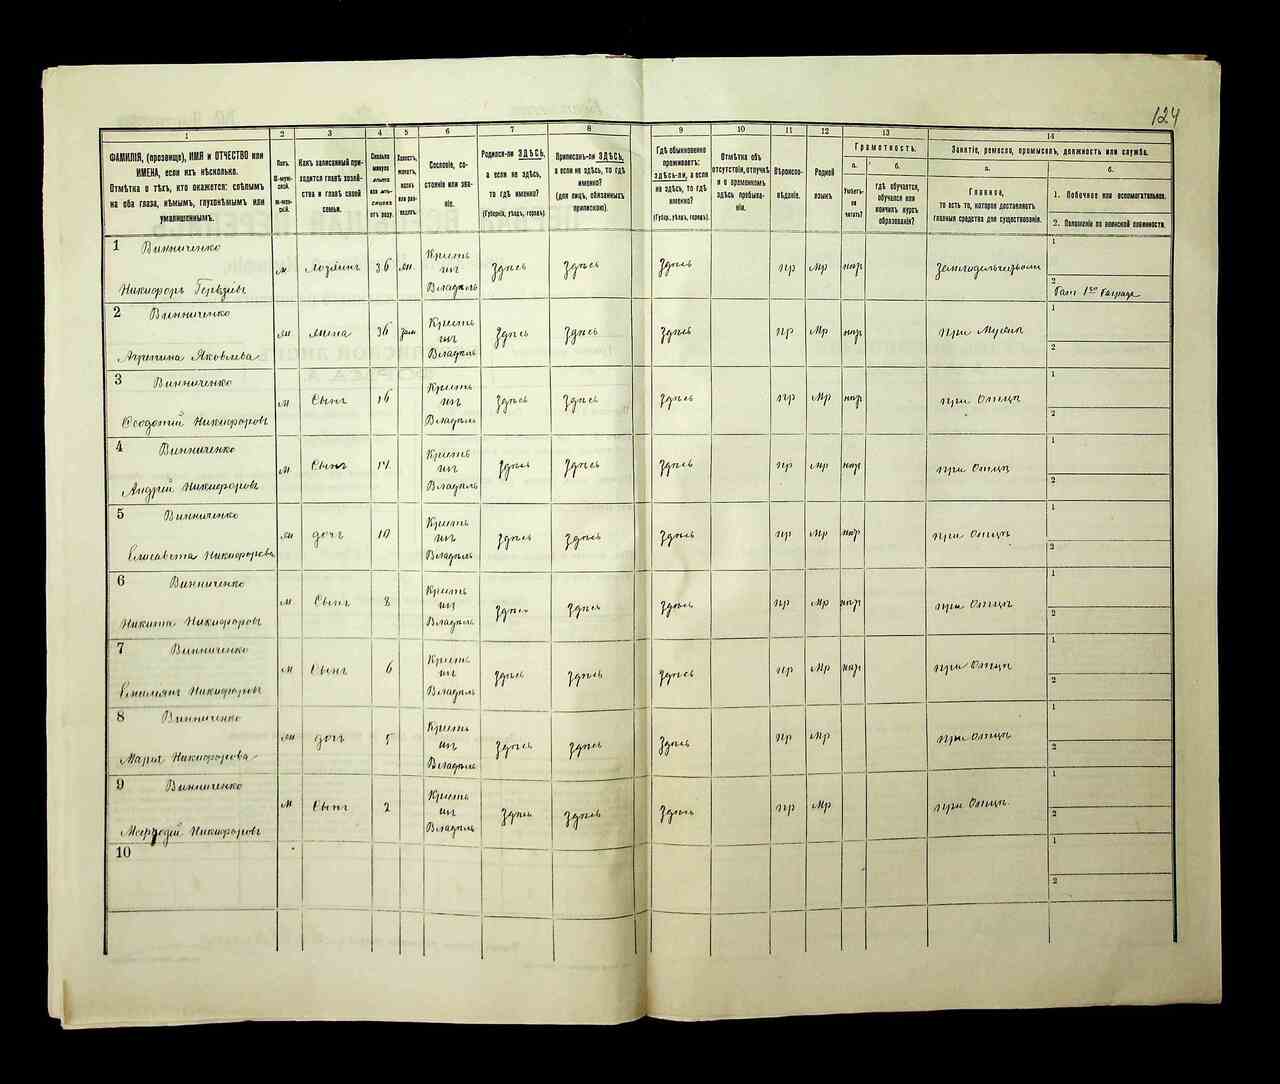 124
1 2 3 4 5 6 7 8 9 10 11 12 13 14
ФАМИЛІЯ, (прозвище), ИМЯ и ОТЧЕСТВО или
ИМЕНА, если ихъ нѣсколько.
Отмѣтка о тѣхъ, кто окажется: слѣпымъ
на оба глаза, нѣмымъ, глухонѣмымъ или
умалишеннымъ.
Полъ.
М-муж-
ской.
Ж-жен-
скій.
Какъ записанный при-
ходится главѣ хозяй-
ства и главѣ своей
семьи.
Сколько
минуло
лѣтъ
или мѣ-
сяцевъ
отъ роду.
Холостъ,
женатъ,
вдовъ
или раз-
веденъ.
Сословіе, со-
стояніе или зва-
ніе.
Родился-ли ЗДѢСЬ,
а если не здѣсь,
то гдѣ именно?
(Губернія, уѣздъ, городъ).
Приписанъ-ли ЗДѢСЬ,
а если не здѣсь, то гдѣ
именно?
(для лицъ, обязанныхъ
припискою).
Гдѣ обыкновенно
проживаетъ:
здѣсь-ли, а если
не здѣсь, то гдѣ
именно?
(Губер., уѣздъ, городъ).
Отмѣтка объ
отсутствіи, отлучкѣ
и о временномъ
здѣсь пребыва-
ніи.
Вѣроиспо-
вѣданіе.
Родной
языкъ
Грамотность.
а.
Умѣетъ-
ли
читать?
б.
гдѣ обучается,
обучался или
кончилъ курсъ
образованія?
Занятіе, ремесло, промыселъ, должность или служба.
а.
Главное,
то есть то, которое доставляетъ
главныя средства для существованія.
б.
1. Побочное или вспомогательное.
2. Положеніе по воинской повинности.
1 Винниченко
м хозяинъ 36 жн. Кресть Здѣсь Здѣсь Здѣсь пр Мр нгр Земледѣлецъ 1
Никифоръ
Владѣль 2
2 Винниченко
жн жена 36 зам Кресть Здѣсь Здѣсь Здѣсь пр Мр нгр при Мужѣ 1
Агрипина Яковлева Владѣль 2
3 Винниченко
м Сынъ 16 Кресть Здѣсь Здѣсь Здѣсь пр Мр нгр при Отцѣ 1
Ѳеодотій Никифоровъ Владѣль 2
4 Винниченко
м Сынъ 14 Кресть Здѣсь Здѣсь Здѣсь пр Мр нгр при Отцѣ 1
Андрій Никифоровъ Владѣль 2
5 Винниченко
жн дочь 10 Кресть Здѣсь Здѣсь Здѣсь пр Мр нгр при Отцѣ 1
Елисавета Никифорова Владѣль 2
6 Винниченко
м Сынъ 8 Кресть Здѣсь Здѣсь Здѣсь пр Мр нгр при Отцѣ 1
Никита Никифоровъ Владѣль 2
7 Винниченко
м Сынъ 6 Кресть Здѣсь Здѣсь Здѣсь пр Мр нгр при Отцѣ 1
Емиліянъ Никифоровъ Владѣль 2
8 Винниченко
жн дочь 5 Кресть Здѣсь Здѣсь Здѣсь пр Мр при Отцѣ 1
Марья Никифорова Владѣль 2
9 Винниченко
м Сынъ 2 Кресть Здѣсь Здѣсь Здѣсь пр Мр при Отцѣ 1
Мефодій Никифоровъ Владѣль 2
10 1
2